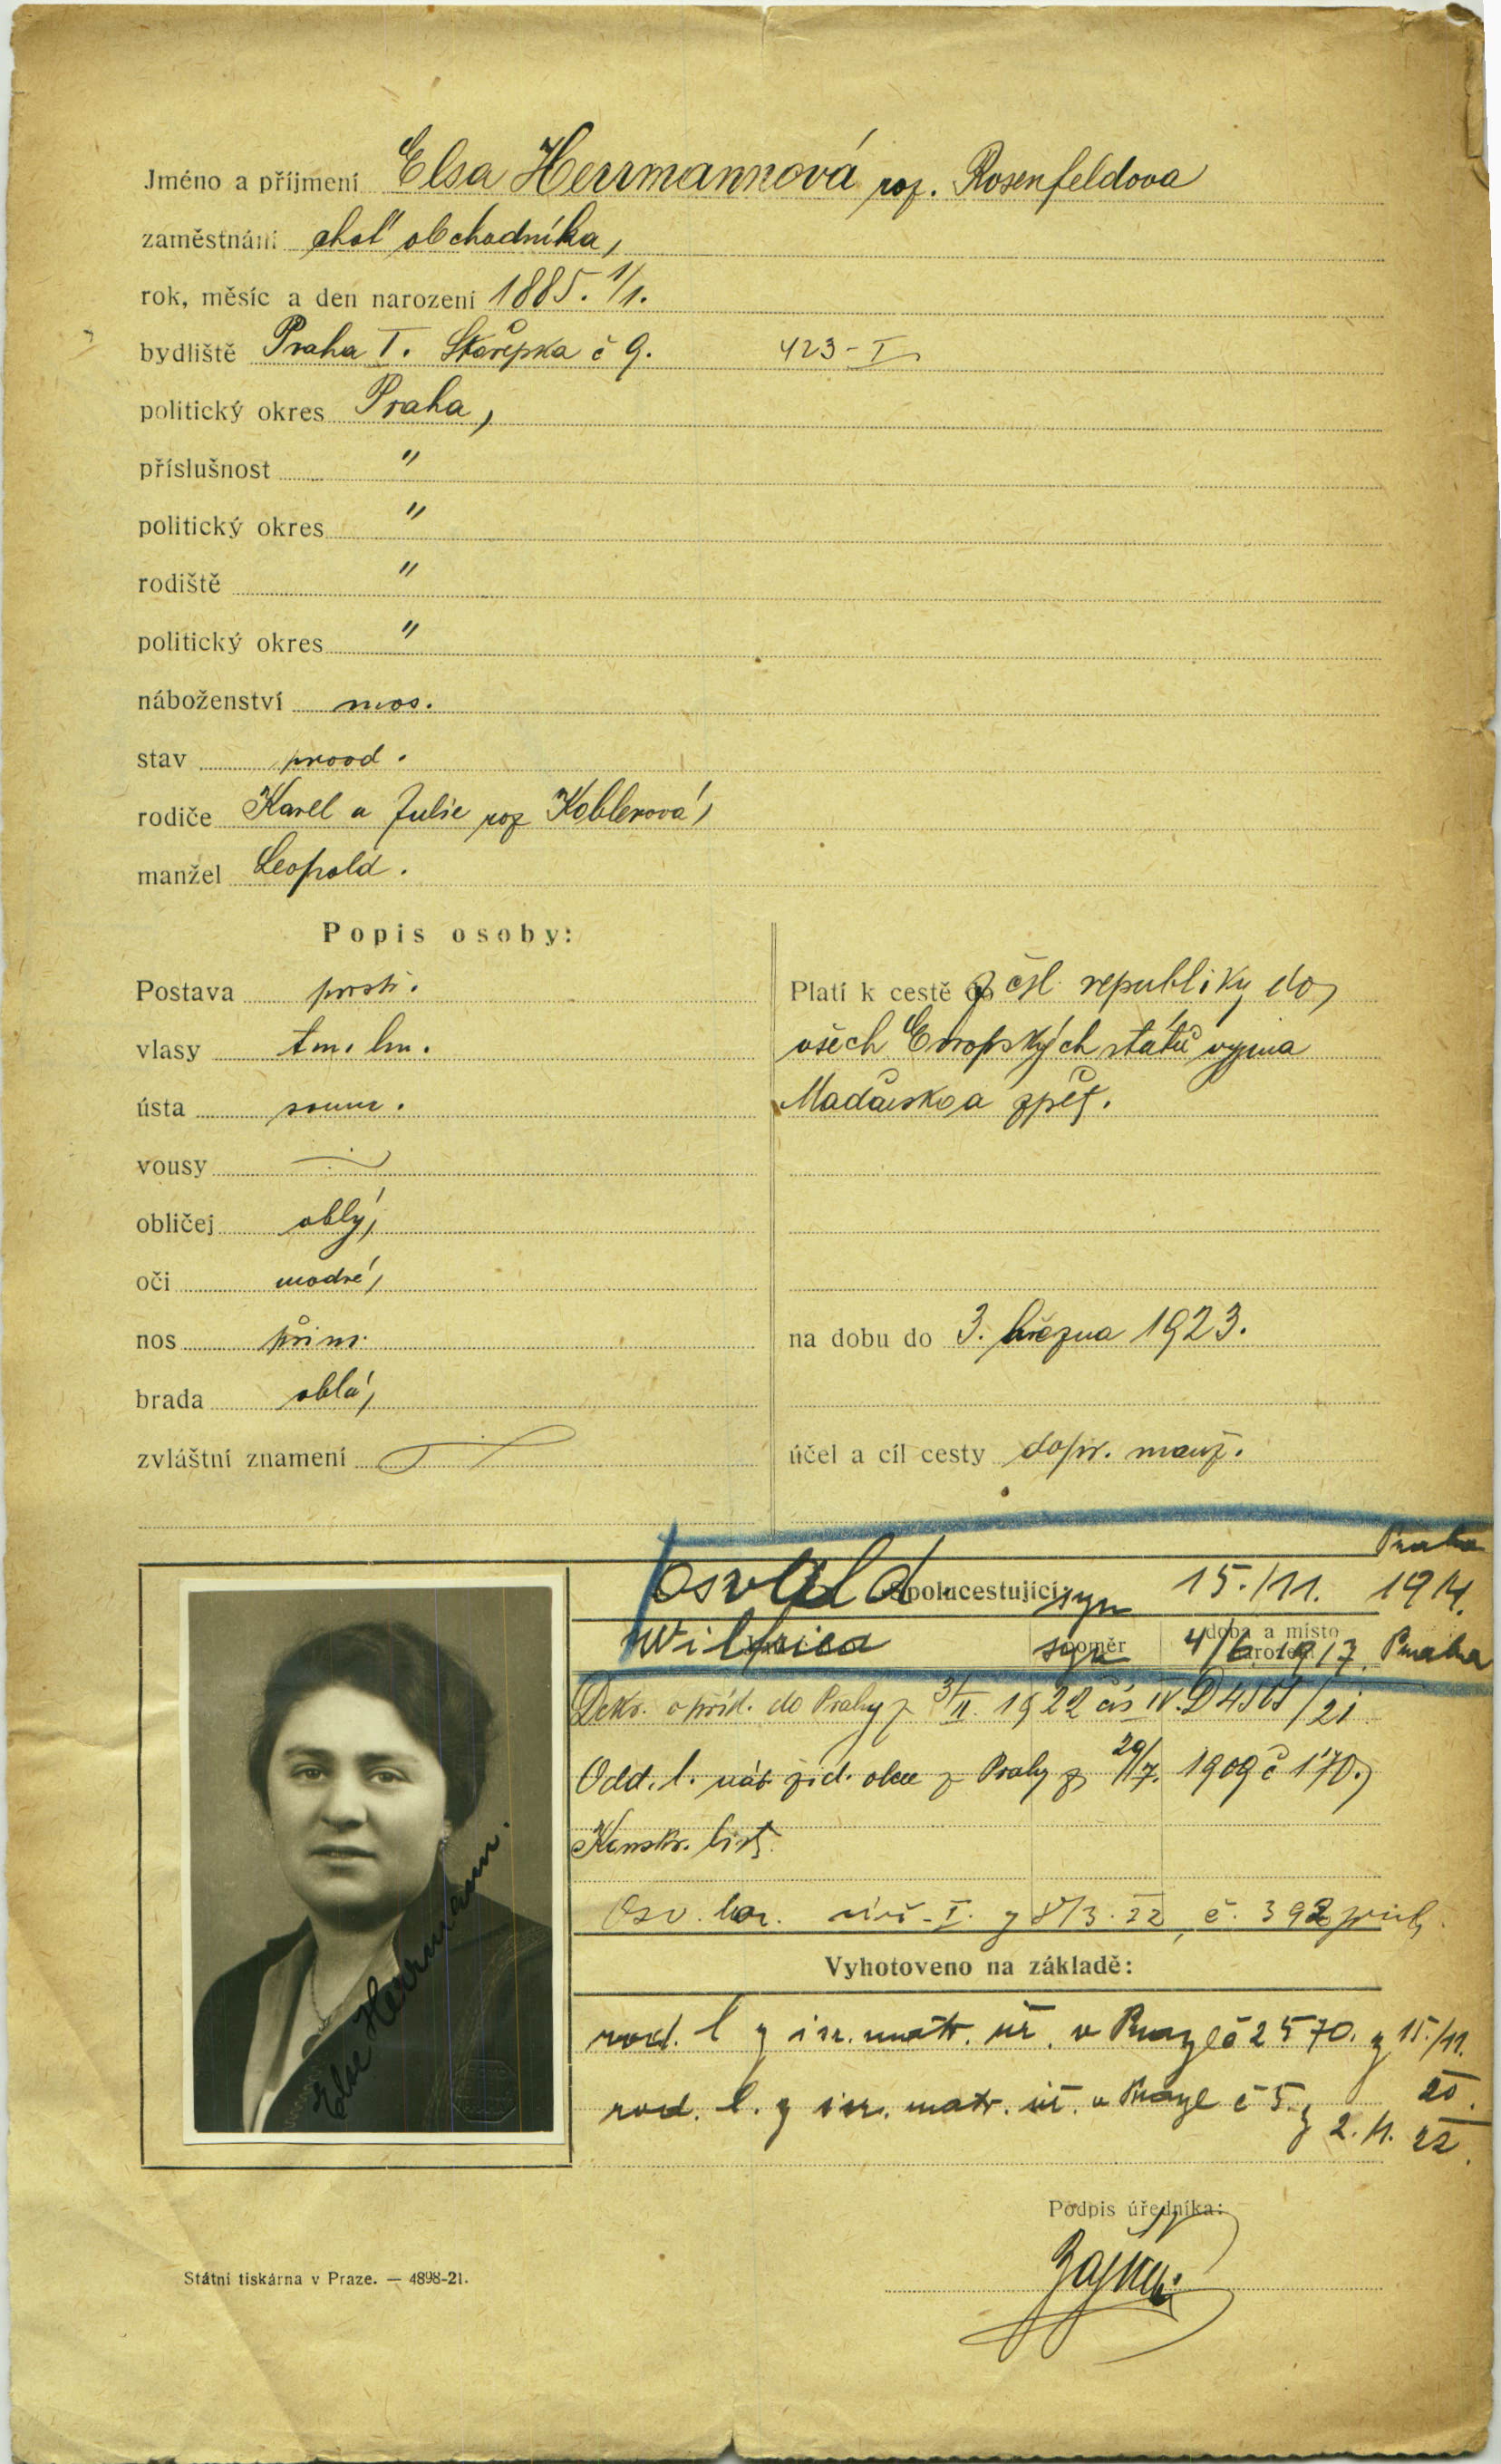 Jméno a příjmení Elsa Herrmannová roz. Rosenfeldova
zaměstnání choť obchodníka,
rok, měsíc a den narození 1885. 1/1.
bydliště Praha I. Skořepka č 9. 423-I
politický okres Praha,
příslušnost "
politický okres "
rodiště "
politický okres "
náboženství mos.
stav provd.
rodiče Karel a Julie roz Koblerová,
manžel Leopold.
Popis osoby:
Postava prost.
vlasy tm. hn.
ústa soum.
vousy
obličej oblý,
oči modré,
nos přim.
brada oblá,
zvláštní znamení
Platí k cestě z čsl. republiky do
všech Evropských států vyjma
Maďarska a zpět.
na dobu do 3. března 1923.
účel a cíl cesty dopr. manž.
Praha
Osvald Spolucestující: syn 15./11. 1914.
Wilfried poměr syn doba a místo narození 4/6. 1917. Praha
Dekr. o přísl. do Prahy z 3/II. 1922 čís IV. D
Odd. l. náb. žid. obce z Prahy z 29/7. 1909 č 170.
Konskr. list.
Osv. I. z 8/3. 22, č. 392
Vyhotoveno na základě:
rod. l z isr. matr. úř. v Praze č 2570. z 15./11. 20.
rod. l. z isr. matr. úř. v Praze č 5. z 2. 11. 22.
Podpis úředníka:
Else Herrmann.
Státní tiskárna v Praze. — 4898-21.